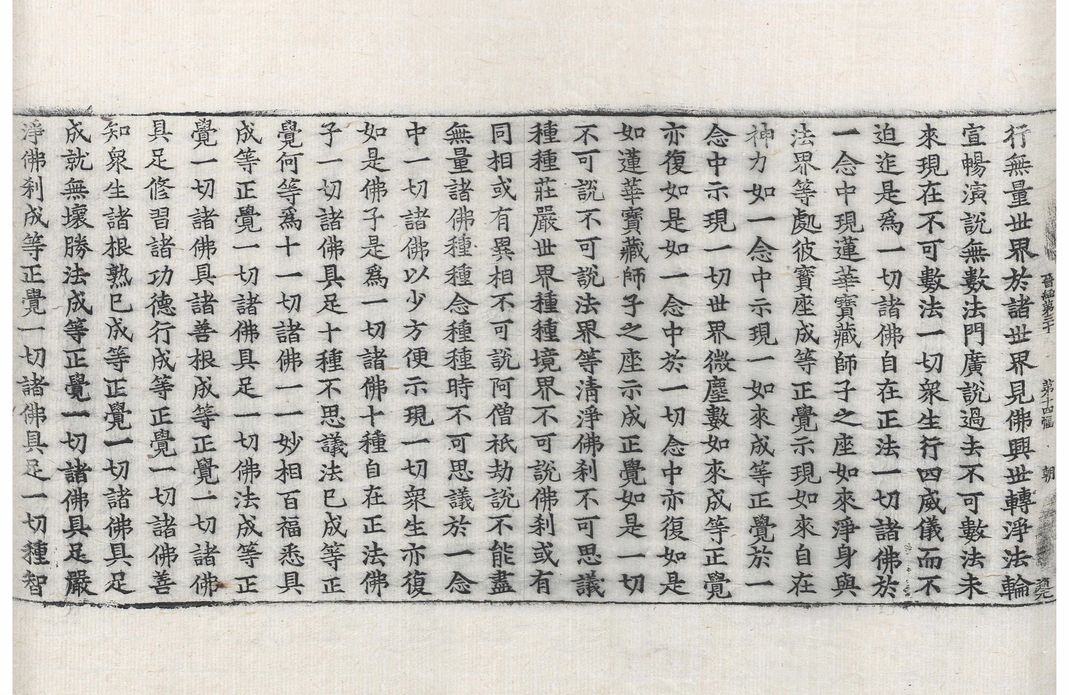 第十四 朝
行無量世界於諸世界見佛興世轉淨法輪
宣暢演說無數法門廣說過去不可數法未
來現在不可數法一切衆生行四威儀而不
迫迮是爲一切諸佛自在正法一切諸佛於
一念中現蓮華寶藏師子之座如來淨身與
法界等處彼寶座成等正覺示現如來自在
神力如一念中示現一如來成等正覺於一
念中示現一切世界微塵數如來成等正覺
亦復如是如一念中於一切念中亦復如是
如蓮華寶藏師子之座示成正覺如是一切
不可說不可說法界等淸淨佛刹不可思議
種種莊嚴世界種種境界不可說佛刹或有
同相或有異相不可說阿僧祇劫說不能盡
無量諸佛種種念種種時不可思議於一念
中一切諸佛以少方便示現一切衆生亦復
如是佛子是爲一切諸佛十種自在正法佛
子一切諸佛具足十種不思議法已成等正
覺何等爲十一切諸佛一一妙相百福悉具
成等正覺一切諸佛具足一切佛法成等正
覺一切諸佛具諸善根成等正覺一切諸佛
具足修習諸功德行成等正覺一切諸佛善
知衆生諸根熟已成等正覺一切諸佛具足
成就無壞勝法成等正覺一切諸佛具足嚴
淨佛刹成等正覺一切諸佛具足一切種智